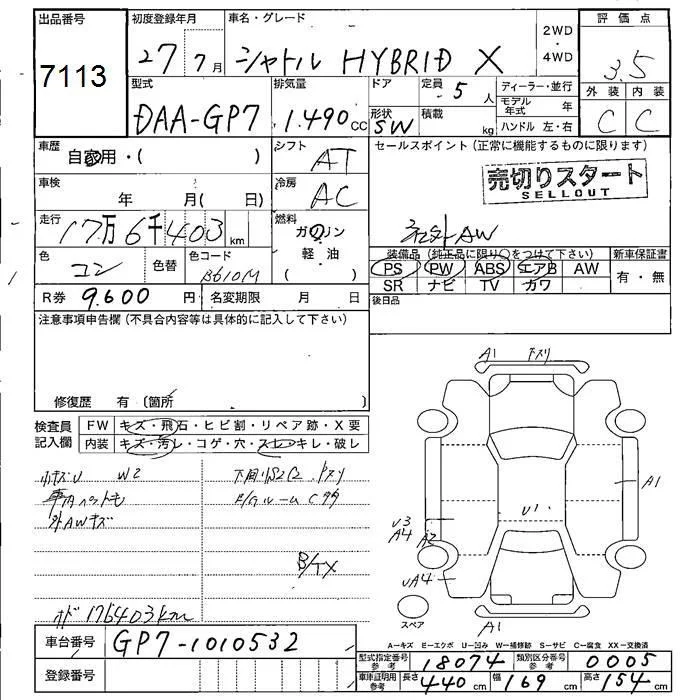 出品番号 初度登録年月 車名・グレード 2WD ・ 4WD 評価点
7113 27 7月 シャトル HYBRID X 3.5
型式 排気量 ドア 定員 5 人 ディーラー・並行 外装 内装
DAA-GP7 1.490 cc 形状 SW 積載 kg モデル年式 年 C C
ハンドル 左・右
車歴 自家用・( ) シフト AT セールスポイント (正常に機能するものに限ります)
車検 年 月( 日) 冷房 AC 売切りスタート
SELLOUT
走行 17万6千403km 燃料 ガソリン 社外AW
軽油
( )
色 色替 色コード B610M 装備品 (純正品に限り○をつけて下さい) 新車保証書
PS PW ABS エアB AW 有・無
SR ナビ TV カワ
R券 9.600 円 名変期限 月 日 後日品
注意事項申告欄 (不具合内容等は具体的に記入して下さい)
修復歴 有 (箇所
A1 下スリ
検査員 FW キズ・飛石・ヒビ割・リペア跡・X要
記入欄 内装 キズ・汚レ・コゲ・穴・スレ・キレ・破レ
小キズU W2
車内ペットモ
外AWキズ
下スリ
E/Gルーム C
A1
U1
U3
A4 A2
UA4
B/TX
スペア
A1
オド 176403km
A-キズ E-エクボ U-凹み W-補修跡 S-サビ C-腐食 XX-交換済
車台番号 GP7-1010532
型式指定番号 参考 18074 類別区分番号 参考 0005
登録番号
車庫証明用 参考 長さ 440cm 幅 169cm 高さ 154cm